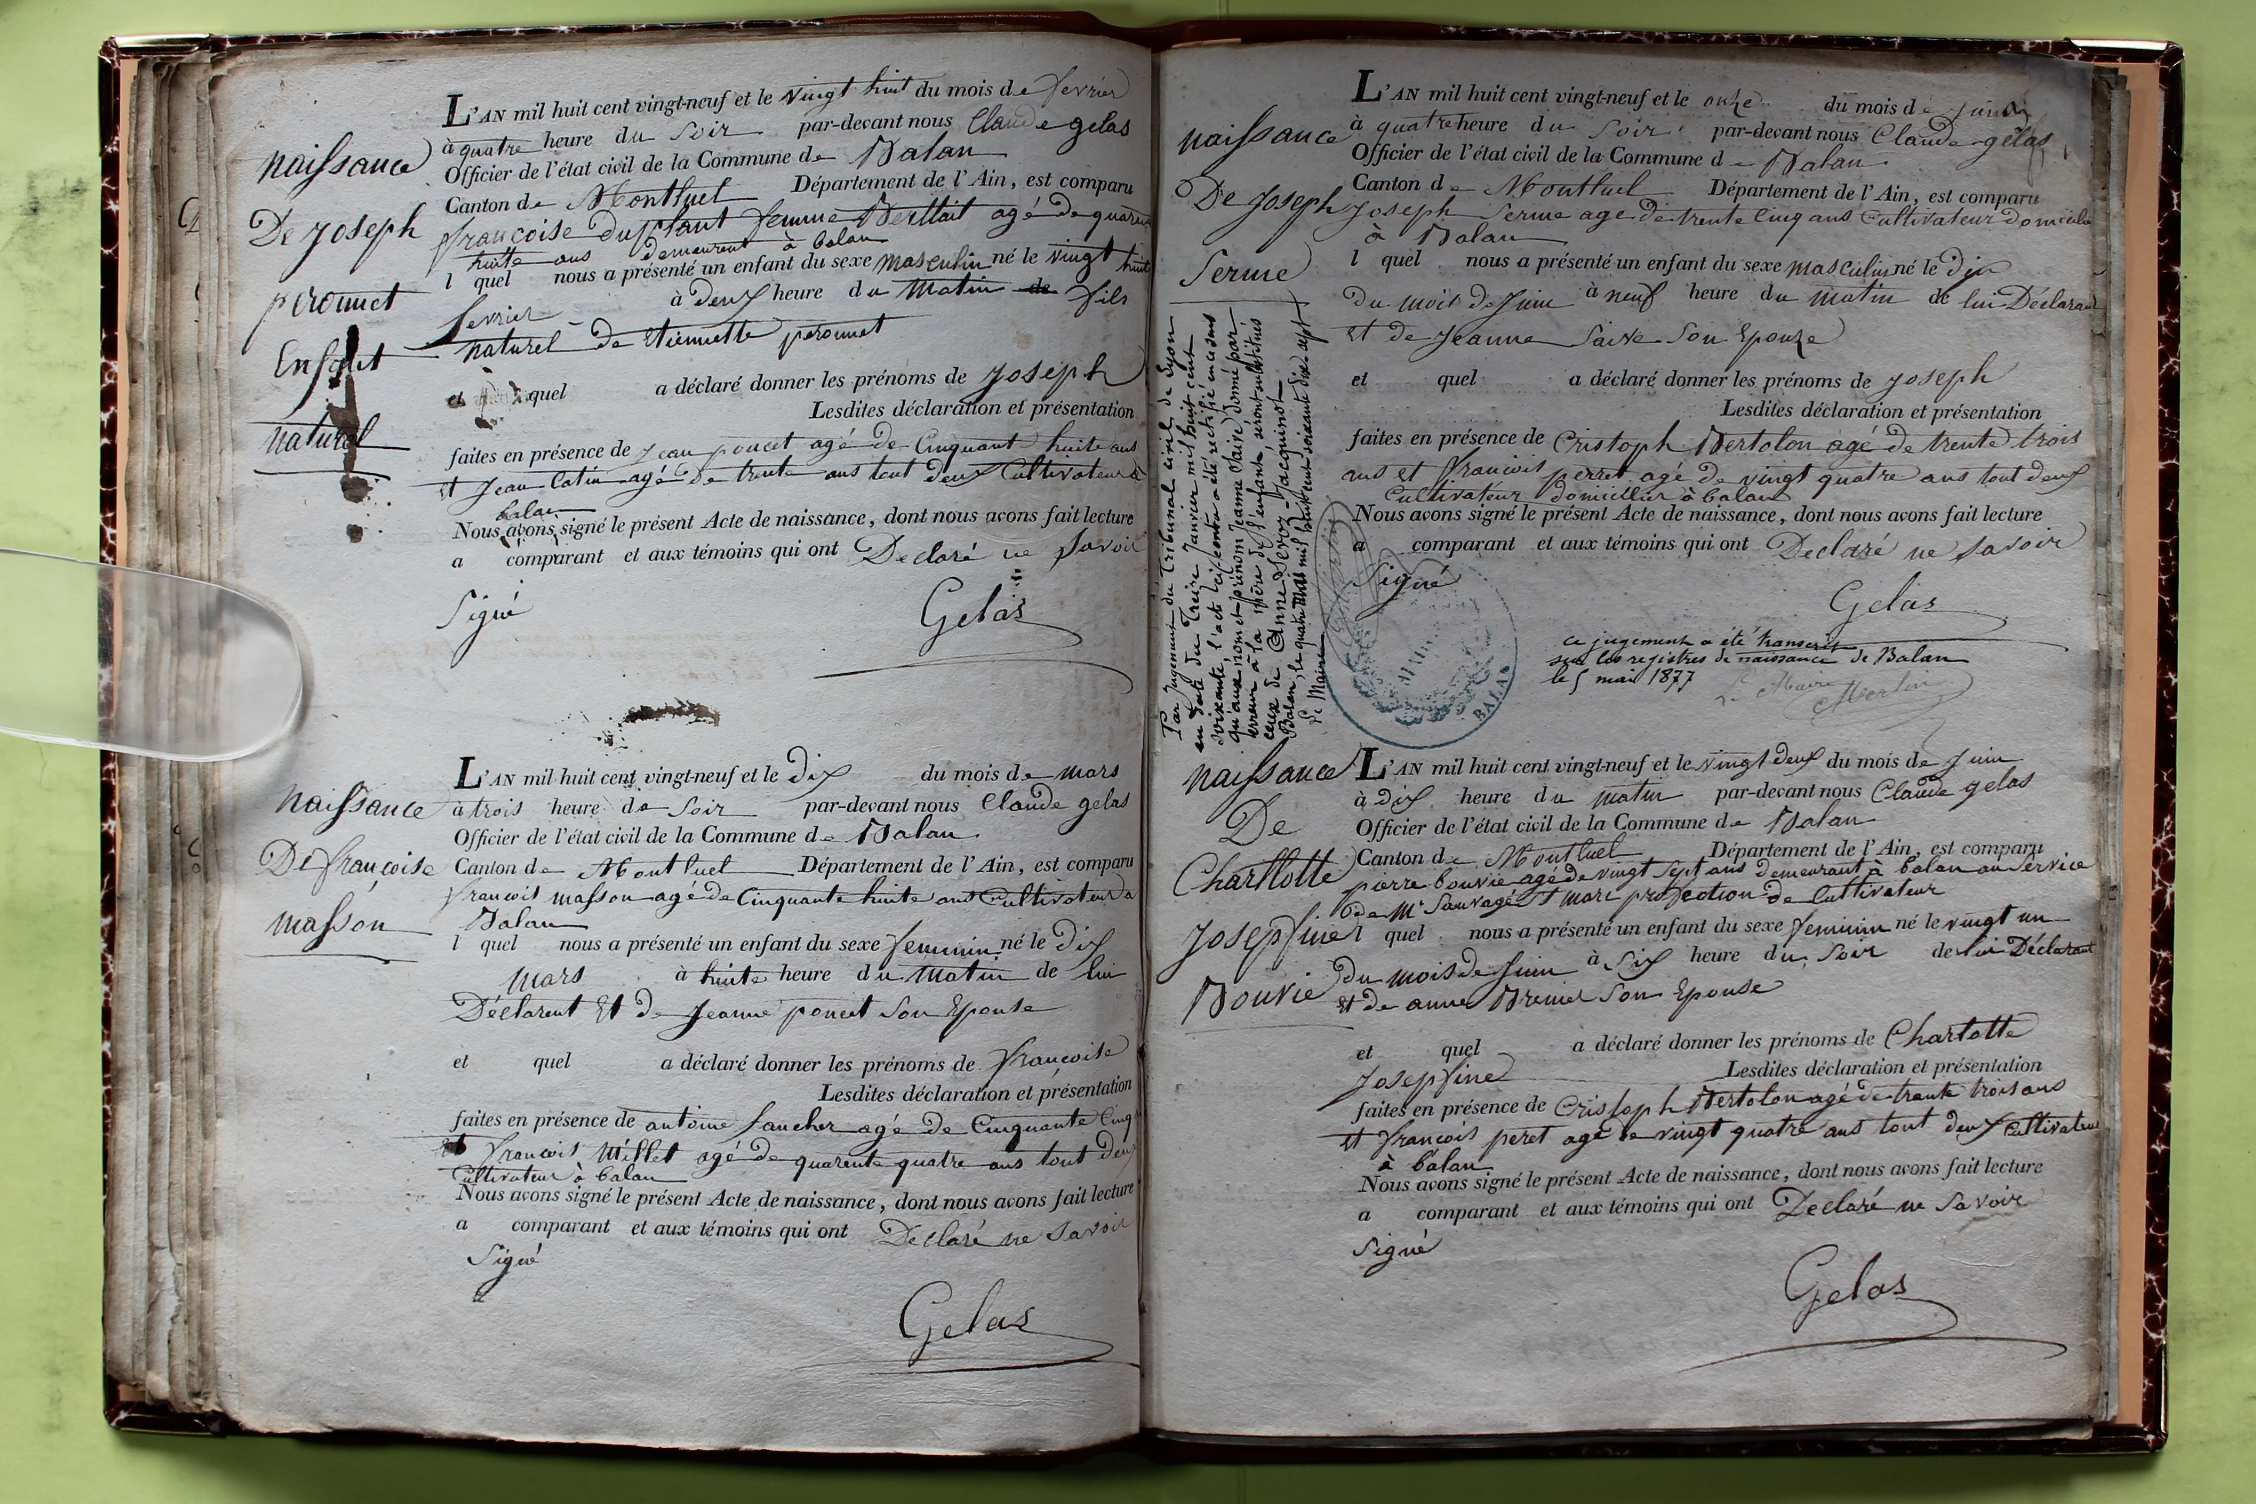 naissance
De Joseph
peronnet
Enfant
naturel
L'AN mil huit cent vingt-neuf et le vingt huit du mois de fevrier
à quatre heure du Soir par-devant nous Claude gelas
Officier de l'état civil de la Commune de Balan
Canton de Montluel Département de l'Ain, est comparu
françoise femme agé de quarente
huite ans demeurent à balan
l quel nous a présenté un enfant du sexe masculin né le vingt huit
fevrier à deux heure du matin de fils
naturel de etiennette peronnet
et quel a déclaré donner les prénoms de Joseph
Lesdites déclaration et présentation
faites en présence de Jean poncet agé de Cinquant huite ans
et Jean Catin agé de trente ans tout deux Cultivateur à
balan
Nous avons signé le présent Acte de naissance, dont nous avons fait lecture
a comparant et aux témoins qui ont Declaré ne Savoir
Signé
Gelas
naissance
De françoise
masson
L'AN mil huit cent vingt-neuf et le dix du mois de mars
à trois heure de Soir par-devant nous Claude gelas
Officier de l'état civil de la Commune de Balan
Canton de Montluel Département de l'Ain, est comparu
francois masson agé de Cinquante huite ans Cultivateur a
Balan
l quel nous a présenté un enfant du sexe feminin né le Dix
mars à huite heure du matin de lui
Déclarent Et de Jeanne poncet Son Epouse
et quel a déclaré donner les prénoms de françoise
Lesdites déclaration et présentation
faites en présence de antoine faucher agé de Cinquante Cinq
et francois Millet agé de quarente quatre ans tout deux
Cultivateur à balan
Nous avons signé le présent Acte de naissance, dont nous avons fait lecture
a comparant et aux témoins qui ont Declaré ne Savoir
Signé
Gelas
naissance
De Joseph
Serme
L'AN mil huit cent vingt-neuf et le onze du mois de Juin
à quatre heure du Soir par-devant nous Claude gelas
Officier de l'état civil de la Commune d e Balan
Canton de Montluel Département de l'Ain, est comparu
Joseph Serme age de trente Cinq ans Cultivateur Domicilie
à Balan
l quel nous a présenté un enfant du sexe masculin né le dix
du mois de Juin à neuf heure du matin de lui Déclarant
Et de Jeanne Saive Son Epouze
et quel a déclaré donner les prénoms de Joseph
Lesdites déclaration et présentation
faites en présence de Cristoph Bertolon agé de trente trois
ans et francois perret agé de vingt quatre ans tout deux
Cultivateur domicilier à balan
Nous avons signé le présent Acte de naissance, dont nous avons fait lecture
a comparant et aux témoins qui ont Declaré ne Savoir
Signé
Gelas
Par Jugement du Tribunal civil de Lyon
en date du Treize Janvier mil huit cent
soixante, l'acte ci-contre a été rectifié en ce sens
qu'aux nom et prénom Jeanne Saive donné par
erreur à la mère de l'enfant, seront substitués
ceux de Anne Servoz-Jacquinot
Balan, le quatre Mai mil huit cent soixante dix-sept
Le Maire
ce jugement a été transcrit
sur les registres de naissance de Balan
le 5 mai 1877
Le Maire
Merlin
BALAN
naissance
De
Charllotte
Josepfine
Bouvie
L'AN mil huit cent vingt-neuf et le vingt deux du mois de Juin
à dix heure du matin par-devant nous Claude gelas
Officier de l'état civil de la Commune de Balan
Canton de Montluel Département de l'Ain, est comparu
pierre bouvie agé de vingt Sept ans demeurant à balan au Service
de Mr Sauvage St marc profection de Cultivateur
l quel nous a présenté un enfant du sexe feminin né le vingt un
du mois de Juin à Six heure du Soir de lui Déclarant
et de anne Brenier Son Epouse
et quel a déclaré donner les prénoms de Charlotte
Josepfine
Lesdites déclaration et présentation
faites en présence de Cristoph Bertolon agé de trente trois ans
et francois peret agé de vingt quatre ans tout deux Cultivateur
à balan
Nous avons signé le présent Acte de naissance, dont nous avons fait lecture
a comparant et aux témoins qui ont Declaré ne Savoir
Signé
Gelas